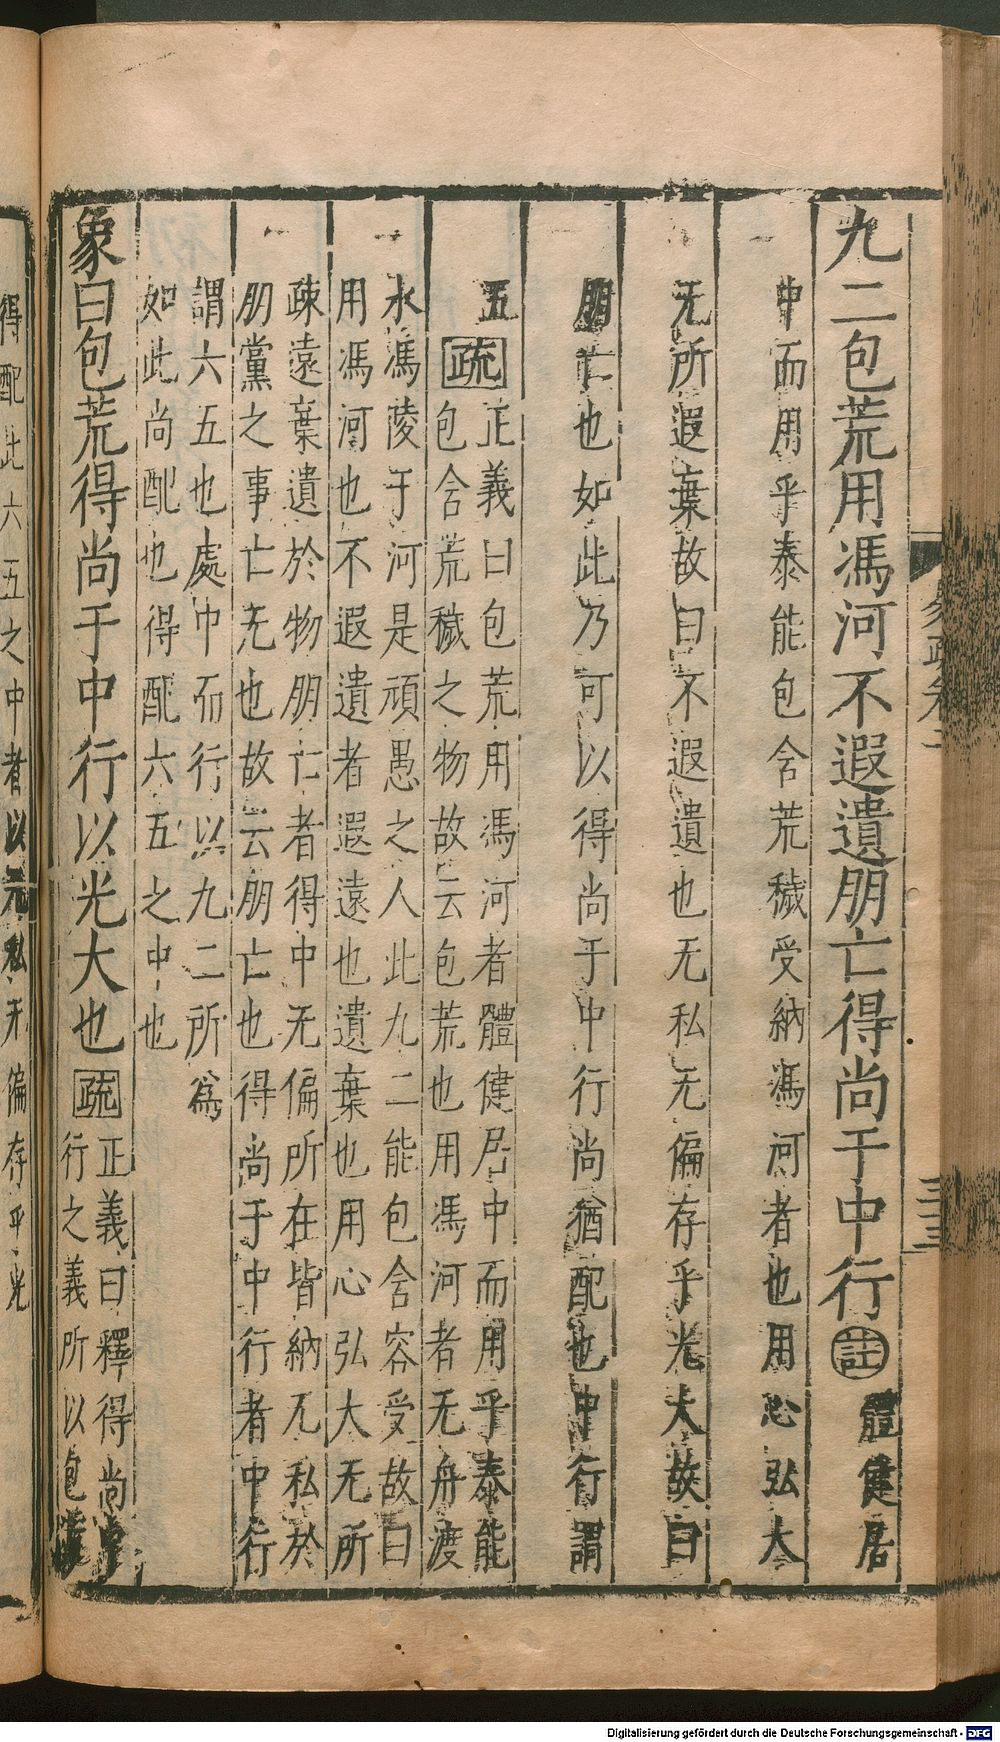 九二包荒用馮河不遐遺朋亡得尚于中行註體健居
中而用乎泰能包含荒穢受納馮河者也用心弘大
无所遐棄故曰不遐遺也无私无偏存乎光大故曰
朋亡也如此乃可以得尚于中行尚猶配也中行謂
五
疏
正義曰包荒用馮河者體健居中而用乎泰能
包含荒穢之物故云包荒也用馮河者无舟渡
水馮陵于河是頑愚之人此九二能包含容受故曰
用馮河也不遐遺者遐遠也遺棄也用心弘大无所
疎遠棄遺於物朋亡者得中无偏所在皆納无私於
朋黨之事亡无也故云朋亡也得尚于中行者中行
謂六五也處中而行以九二所為
如此尚配也得配六五之中也
象曰包荒得尚于中行以光大也疏
正義曰釋得尚中
行之義所以包荒
得配此六五之中者以无私无偏存乎光
易疏卷二
三十三
Digitalisierung gefördert durch die Deutsche Forschungsgemeinschaft - DFG